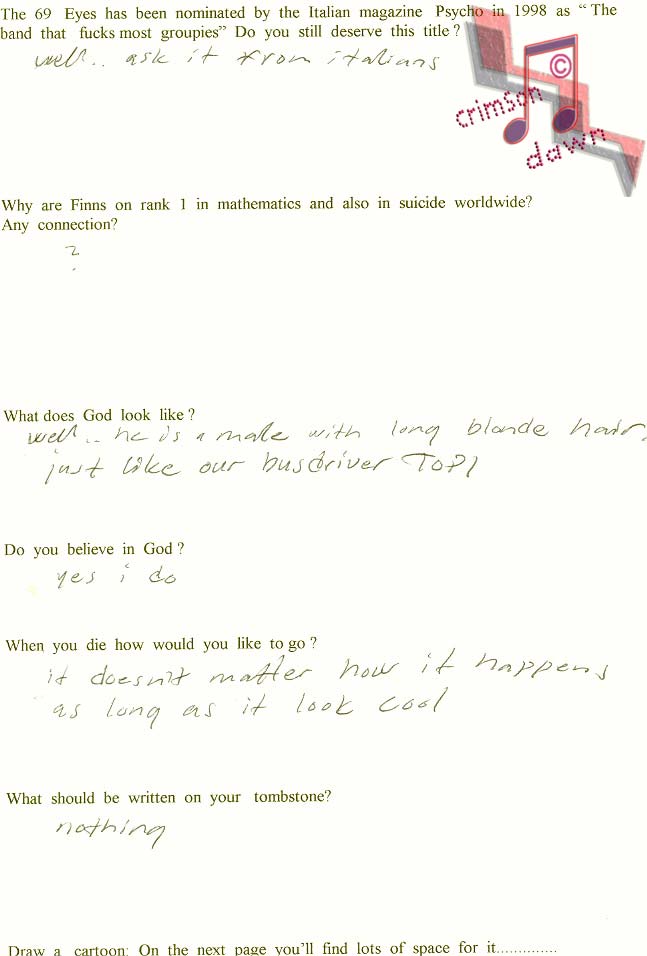 The 69 Eyes has been nominated by the Italian magazine Psycho in 1998 as “ The
band that fucks most groupies” Do you still deserve this title ?
well.. ask it from italians
©
crimson
dawn
Why are Finns on rank 1 in mathematics and also in suicide worldwide?
Any connection?
?
What does God look like ?
well.. he is a male with long blonde hair.
just like our busdriver TOPI
Do you believe in God ?
yes i do
When you die how would you like to go ?
it doesn't matter how it happens
as long as it look cool
What should be written on your tombstone?
nothing
Draw a cartoon: On the next page you’ll find lots of space for it..............